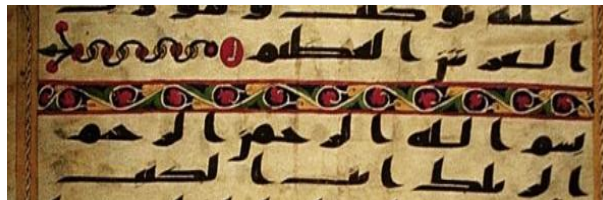 عليه توكلت وهو رب
العرش العظيم
بسم الله الرحمن الرحيم
الر تلك ايت الكتب